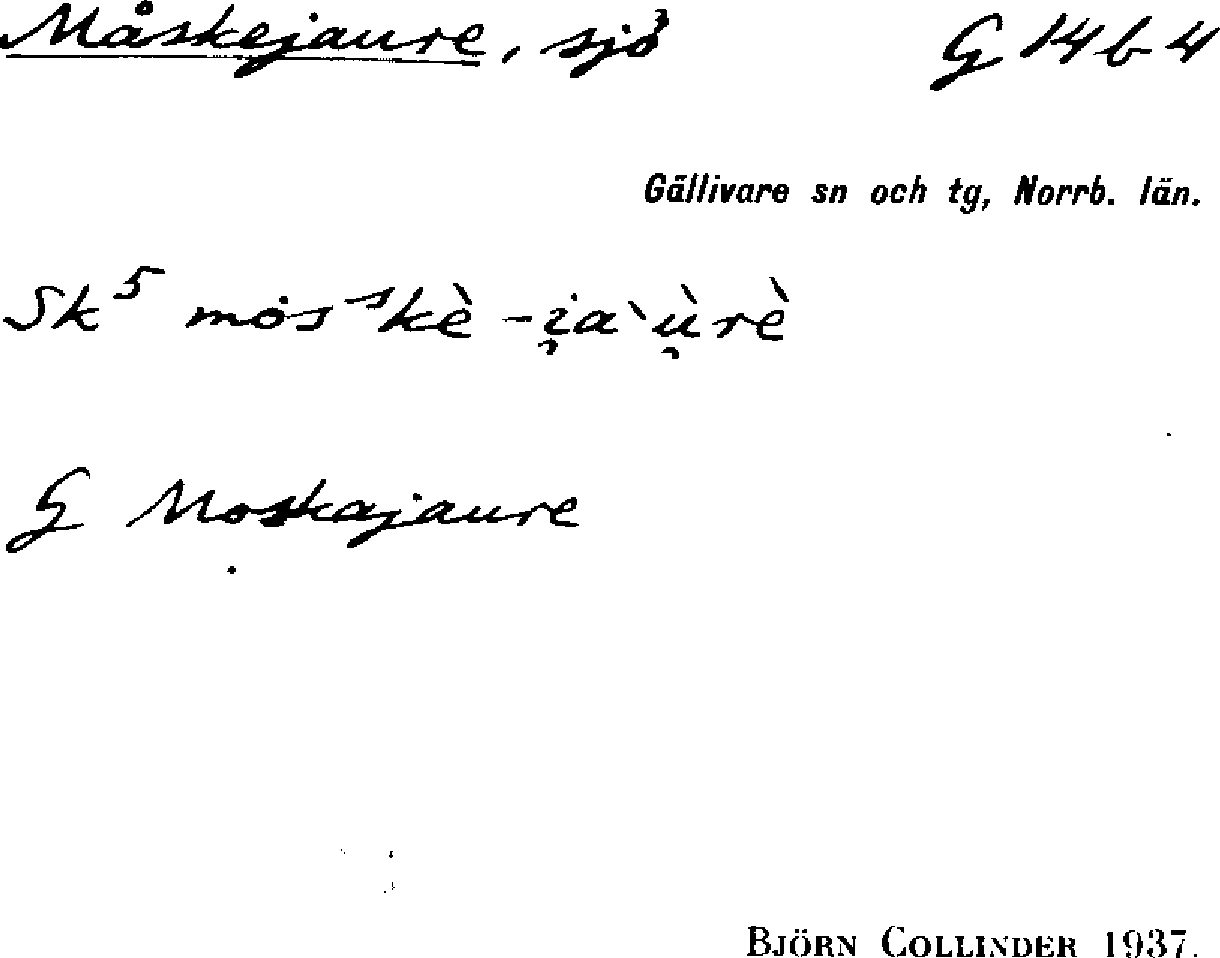 Måskejaure, sjö G 14 b 4
Gällivare sn och tg, Norrb. län.
Sk⁵ mȯsˢkè -i̯a`ù̯rè
G Moskajaure
BJÖRN COLLINDER 1937.